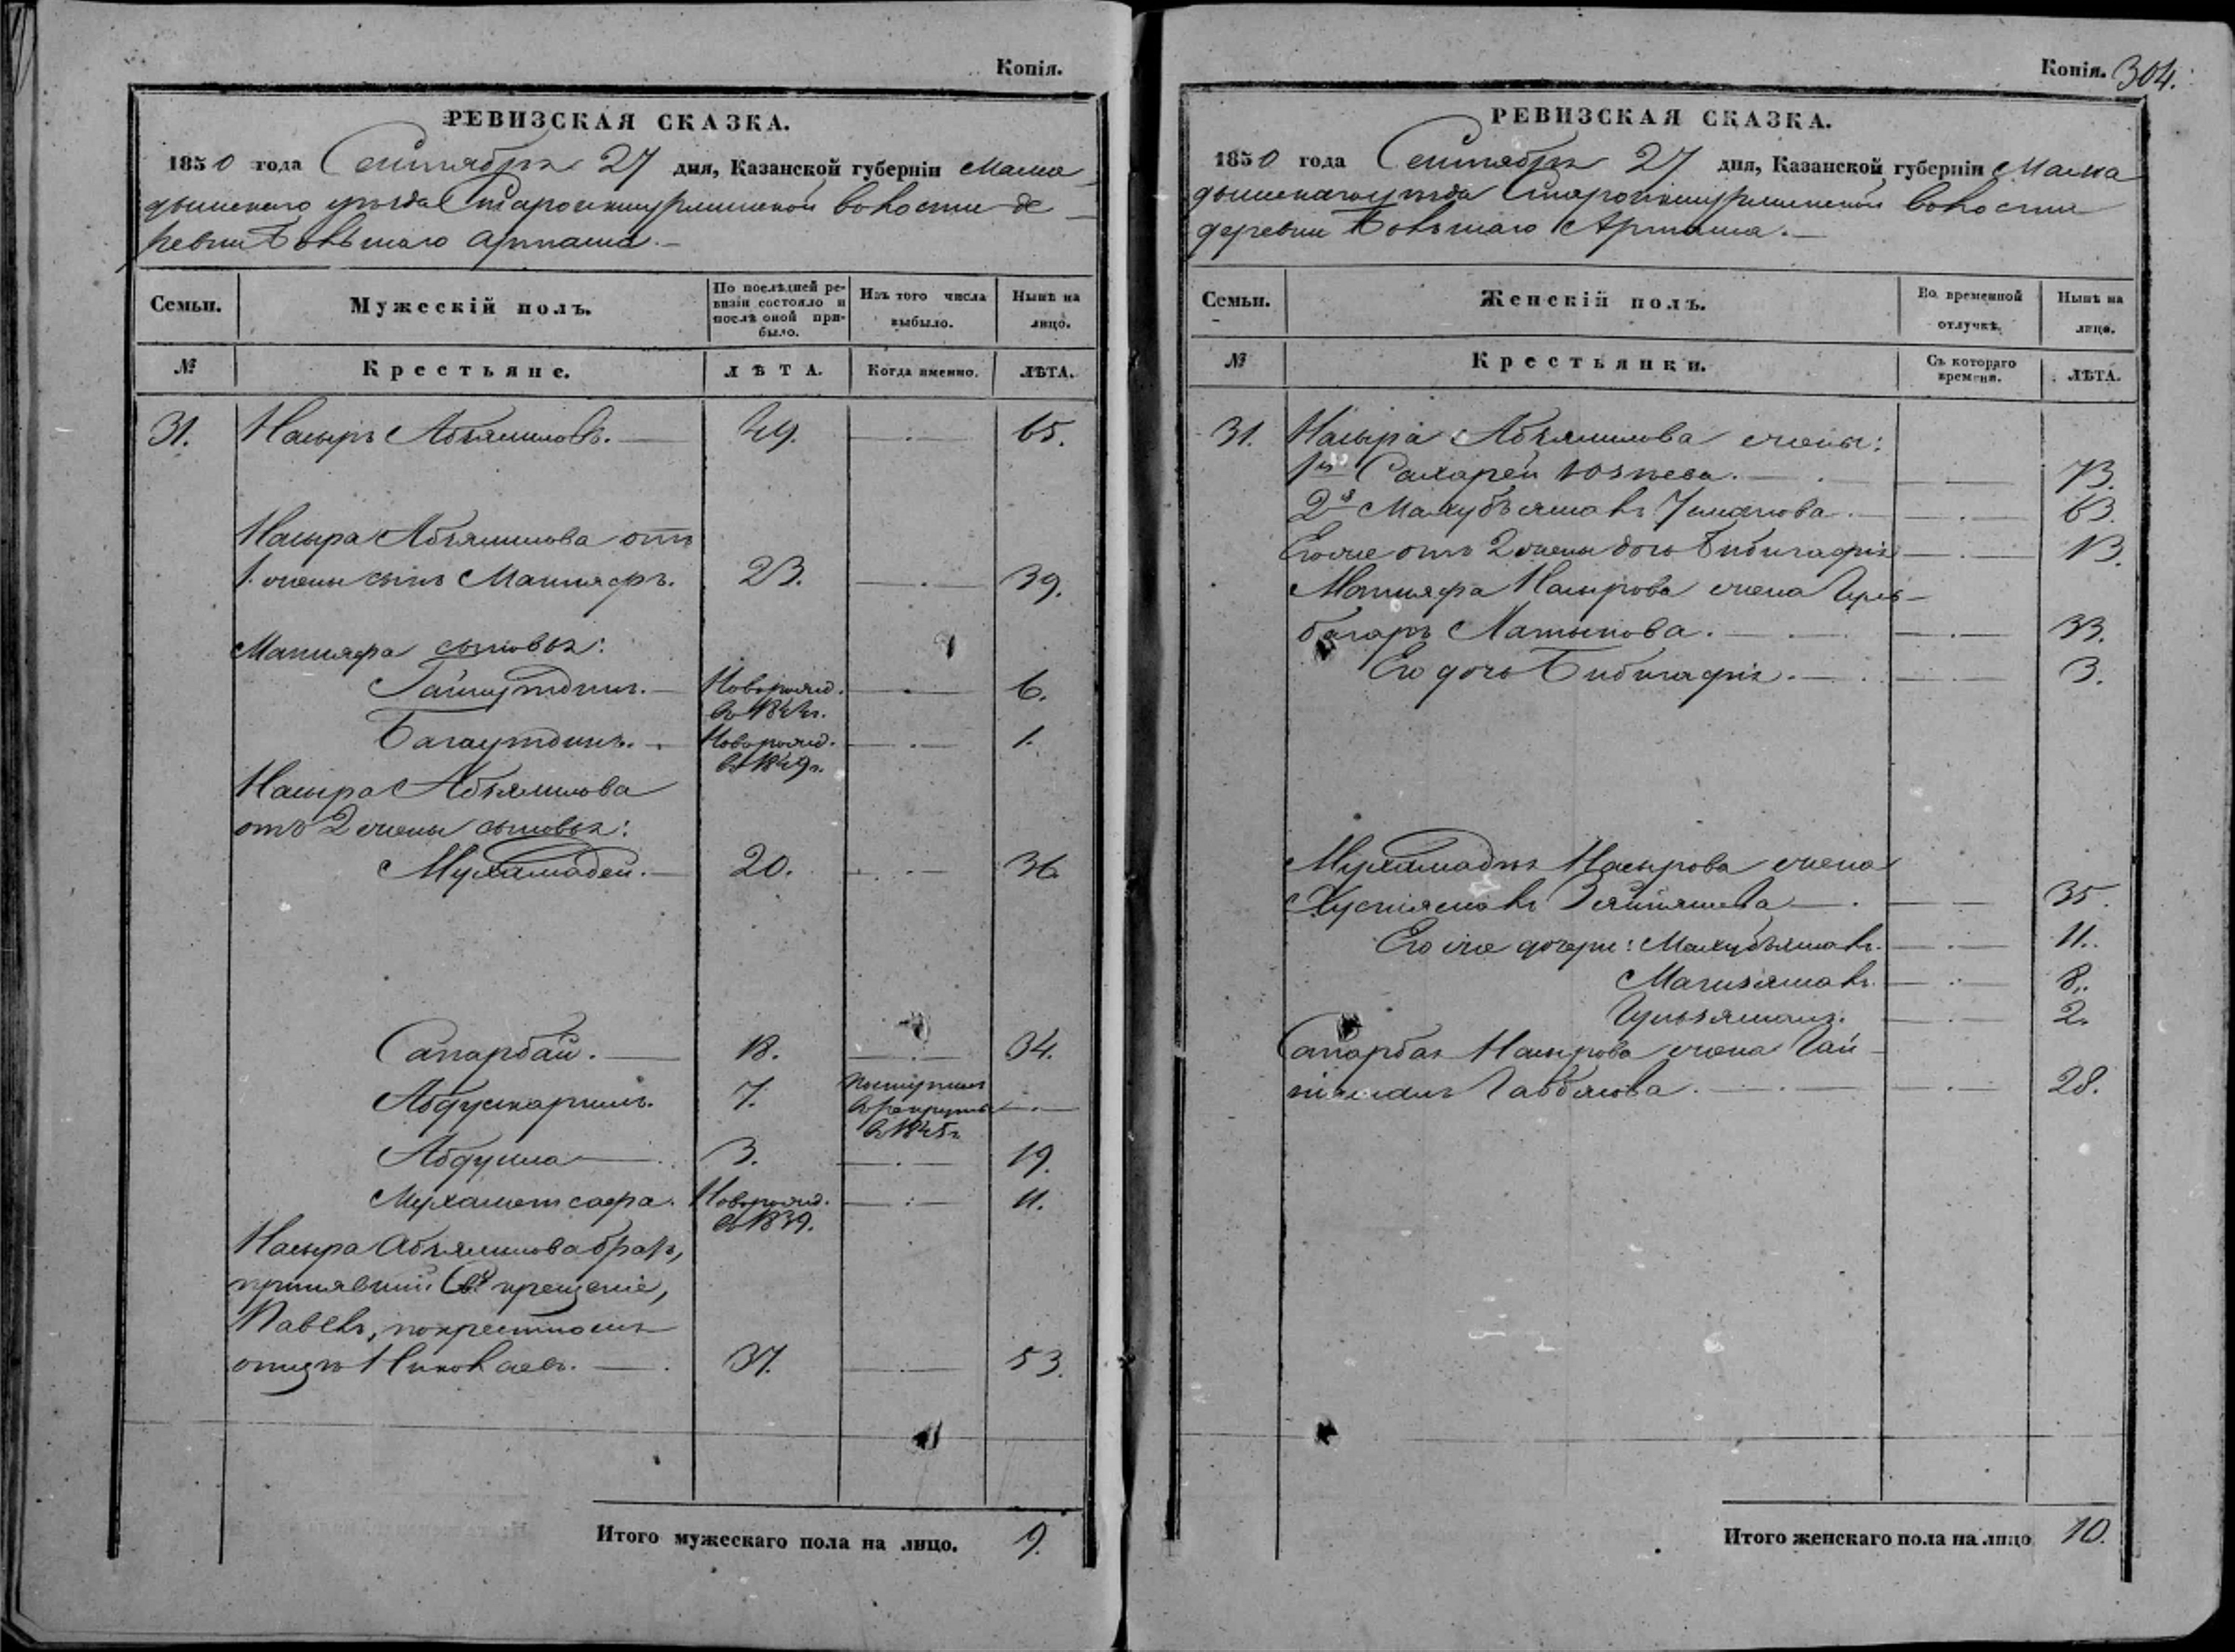 Копія.
РЕВИЗСКАЯ СКАЗКА.
1850 года Сентября 27 дня, Казанской губерніи Мама-
дышскаго уѣзда Староикшурминской волости де-
ревни Большаго Арташа.
Семьи. Мужескій полъ. По послѣдней ре- Изъ того числа Нынѣ на
визіи состояло и выбыло. лицо.
послѣ оной при-
было.
№ Крестьяне. ЛѢТА. Когда именно. ЛѢТА.
31. Насыръ Абъялиловъ. 49. 65.
Насыра Абъялилова отъ
1. жены сынъ Маннафъ. 23. 39.
Маннафа сыновья:
Гайнутдинъ. Новорожд. 6.
въ 1844г.
Багаутдинъ. Новорожд. 1.
въ 1849г.
Насыра Абъялилова
отъ 2 жены сыновья:
Мухамадей. 20. 36.
Сапарбай. 18. 34.
Абдулкаримъ. 7. поступилъ
въ рекруты
въ 1845г.
Абдулла 3. 19.
Мухаметсафа. Новорожд. 11.
въ 1839.
Насыра Абъялилова братъ,
принявший Св. крещеніе,
Павелъ, по крестному
отцу Николаевъ. 37. 53.
Итого мужескаго пола на лицо. 9.
Копія. 304.
РЕВИЗСКАЯ СКАЗКА.
1850 года Сентября 27 дня, Казанской губерніи Мама
дышскаго уѣзда Староикшурминской волости
деревни Большаго Арташа.
Семьи. Женскій полъ. Во временной Нынѣ на
отлучкѣ. лицо.
№ Крестьянки. Съ котораго ЛѢТА.
времени.
31. Насыра Абъялилова жены:
1я Сахарей 73.
2я Махубъямалъ Усманова. 63.
Его же отъ 2 жены дочь Бибигафия 13.
Маннафа Насырова жена Гуль-
багаръ Латыпова. 33.
Его дочь Бибигафия. 3.
Мухамадея Насырова жена
Хуснямалъ 35.
Его же дочери: Махубъямалъ. 11.
8.
Гульямалъ. 2.
Сапарбая Насырова жена Гай
28.
Итого женскаго пола на лицо 10.